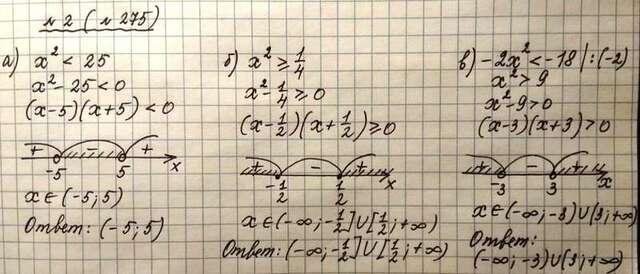 № 2 (№ 275)
а) x² < 25
x² - 25 < 0
(x-5)(x+5) < 0
+ - +
-5 5 x
x ∈ (-5; 5)
Ответ: (-5; 5)
б) x² ≥ 1/4
x² - 1/4 ≥ 0
(x - 1/2)(x + 1/2) ≥ 0
+ - +
-1/2 1/2 x
x ∈ (-∞; -1/2] ∪ [1/2; +∞)
Ответ: (-∞; -1/2] ∪ [1/2; +∞)
в) -2x² < -18 | : (-2)
x² > 9
x² - 9 > 0
(x-3)(x+3) > 0
+ - +
-3 3 x
x ∈ (-∞; -3) ∪ (3; +∞)
Ответ:
(-∞; -3) ∪ (3; +∞)